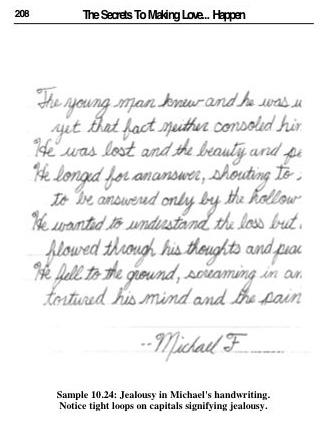 208 The Secrets To Making Love... Happen
The young man knew and he was
yet that fact neither consoled
He was lost and the beauty and
He longed for ananswer, shouting to
to be answered only by the hollow
He wanted to understand the loss but
flowed through his thoughts and
He fell to the ground, screaming in
tortured his mind and the pain
-- Michael F
Sample 10.24: Jealousy in Michael's handwriting.
Notice tight loops on capitals signifying jealousy.